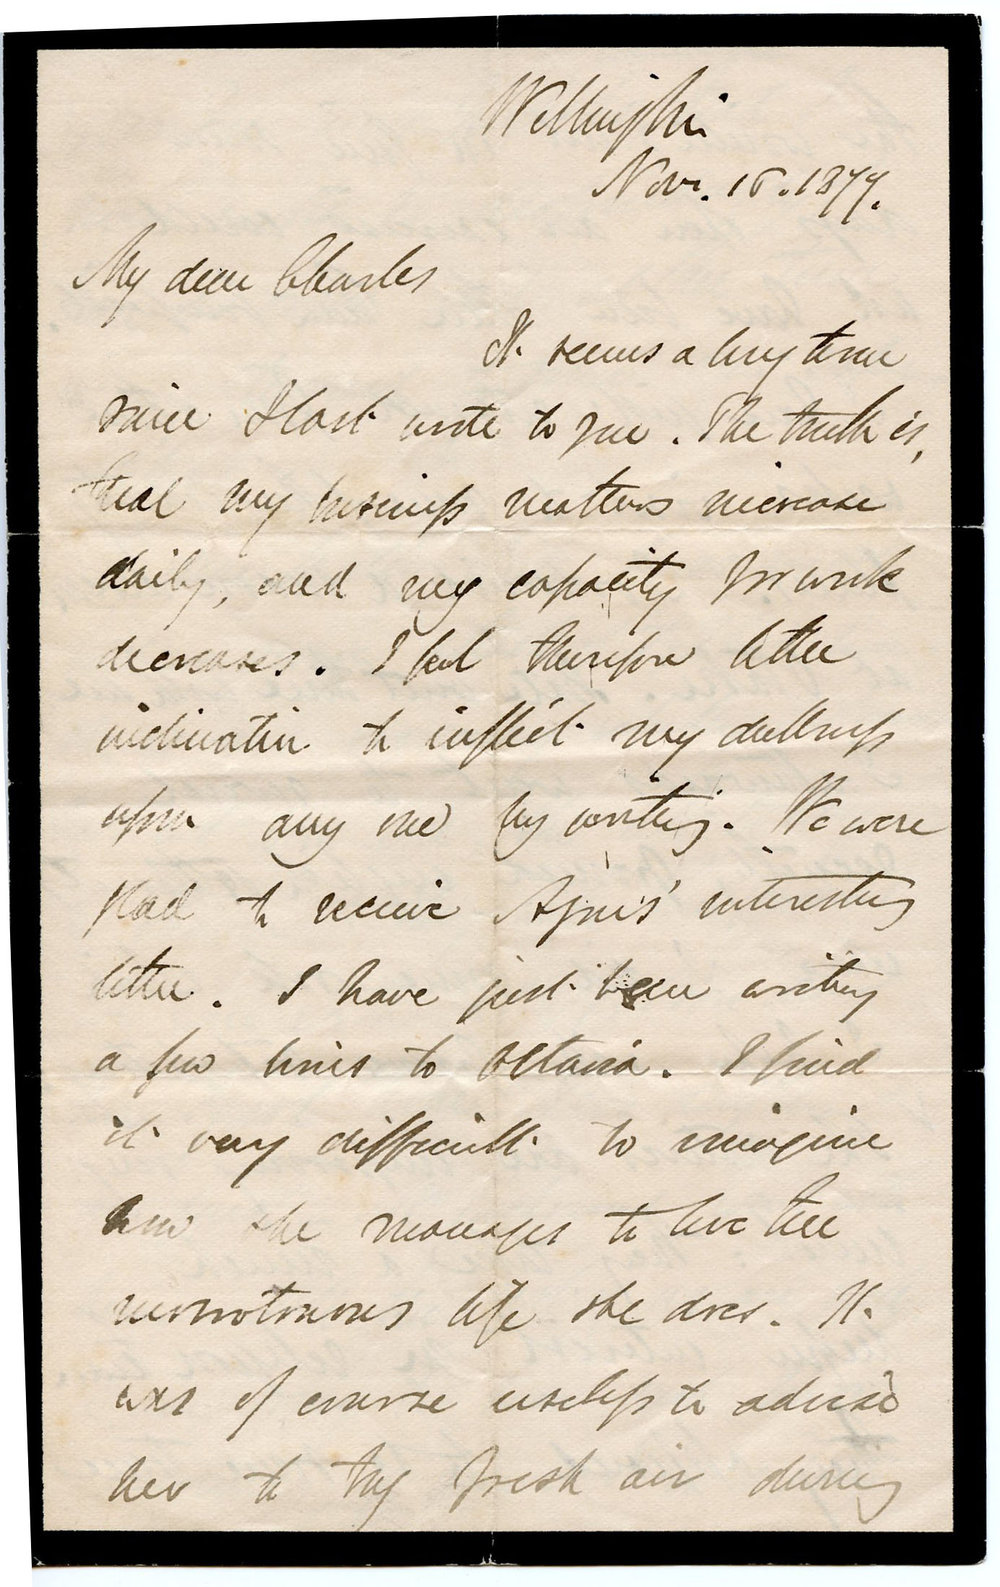 Wilmington
Nov. 15. 1877.
My dear Charles
It seems a long time
since I last wrote to you. The truth is,
that my business matters increase
daily, and my capacity for work
decreases. I feel therefore little
inclination to inflict my dullness
upon any one by writing. We were
glad to receive Agnes' interesting
letter. I have just been writing
a few lines to Octavia. I find
it very difficult to imagine
how she manages to live the
monotonous life she does. It
was of course useless to advise
her to try fresh air during